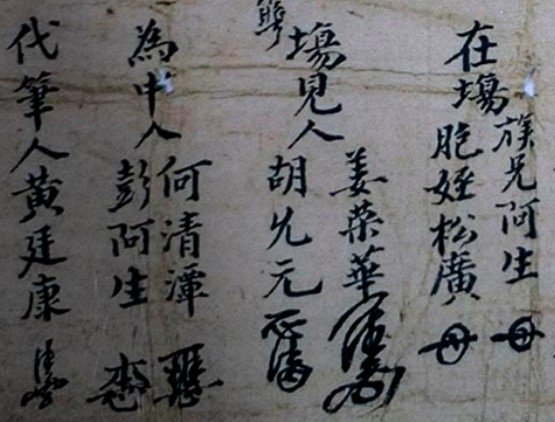 在場
族兄阿生
胞姪松廣
場見人
姜榮華
胡允元
為中人
何清潭
彭阿生
代筆人黃廷康